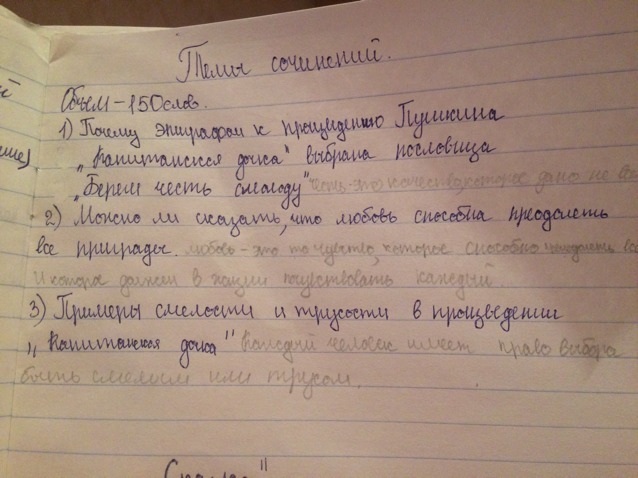 Темы сочинений.
Объем - 150 слов.
1) Почему эпиграфом к произведению Пушкина
„Капитанская дочка" выбрана пословица
„Береги честь смолоду" честь - это качество, которое дано не все
2) Можно ли сказать, что любовь способна преодолеть
все преграды. любовь - это то чувство, которое способно преодолеть все
И которое должен в жизни почувствовать каждый.
3) Примеры смелости и трусости в произведении
„Капитанская дочка" Каждый человек имеет право выбора
быть смелым или трусом.